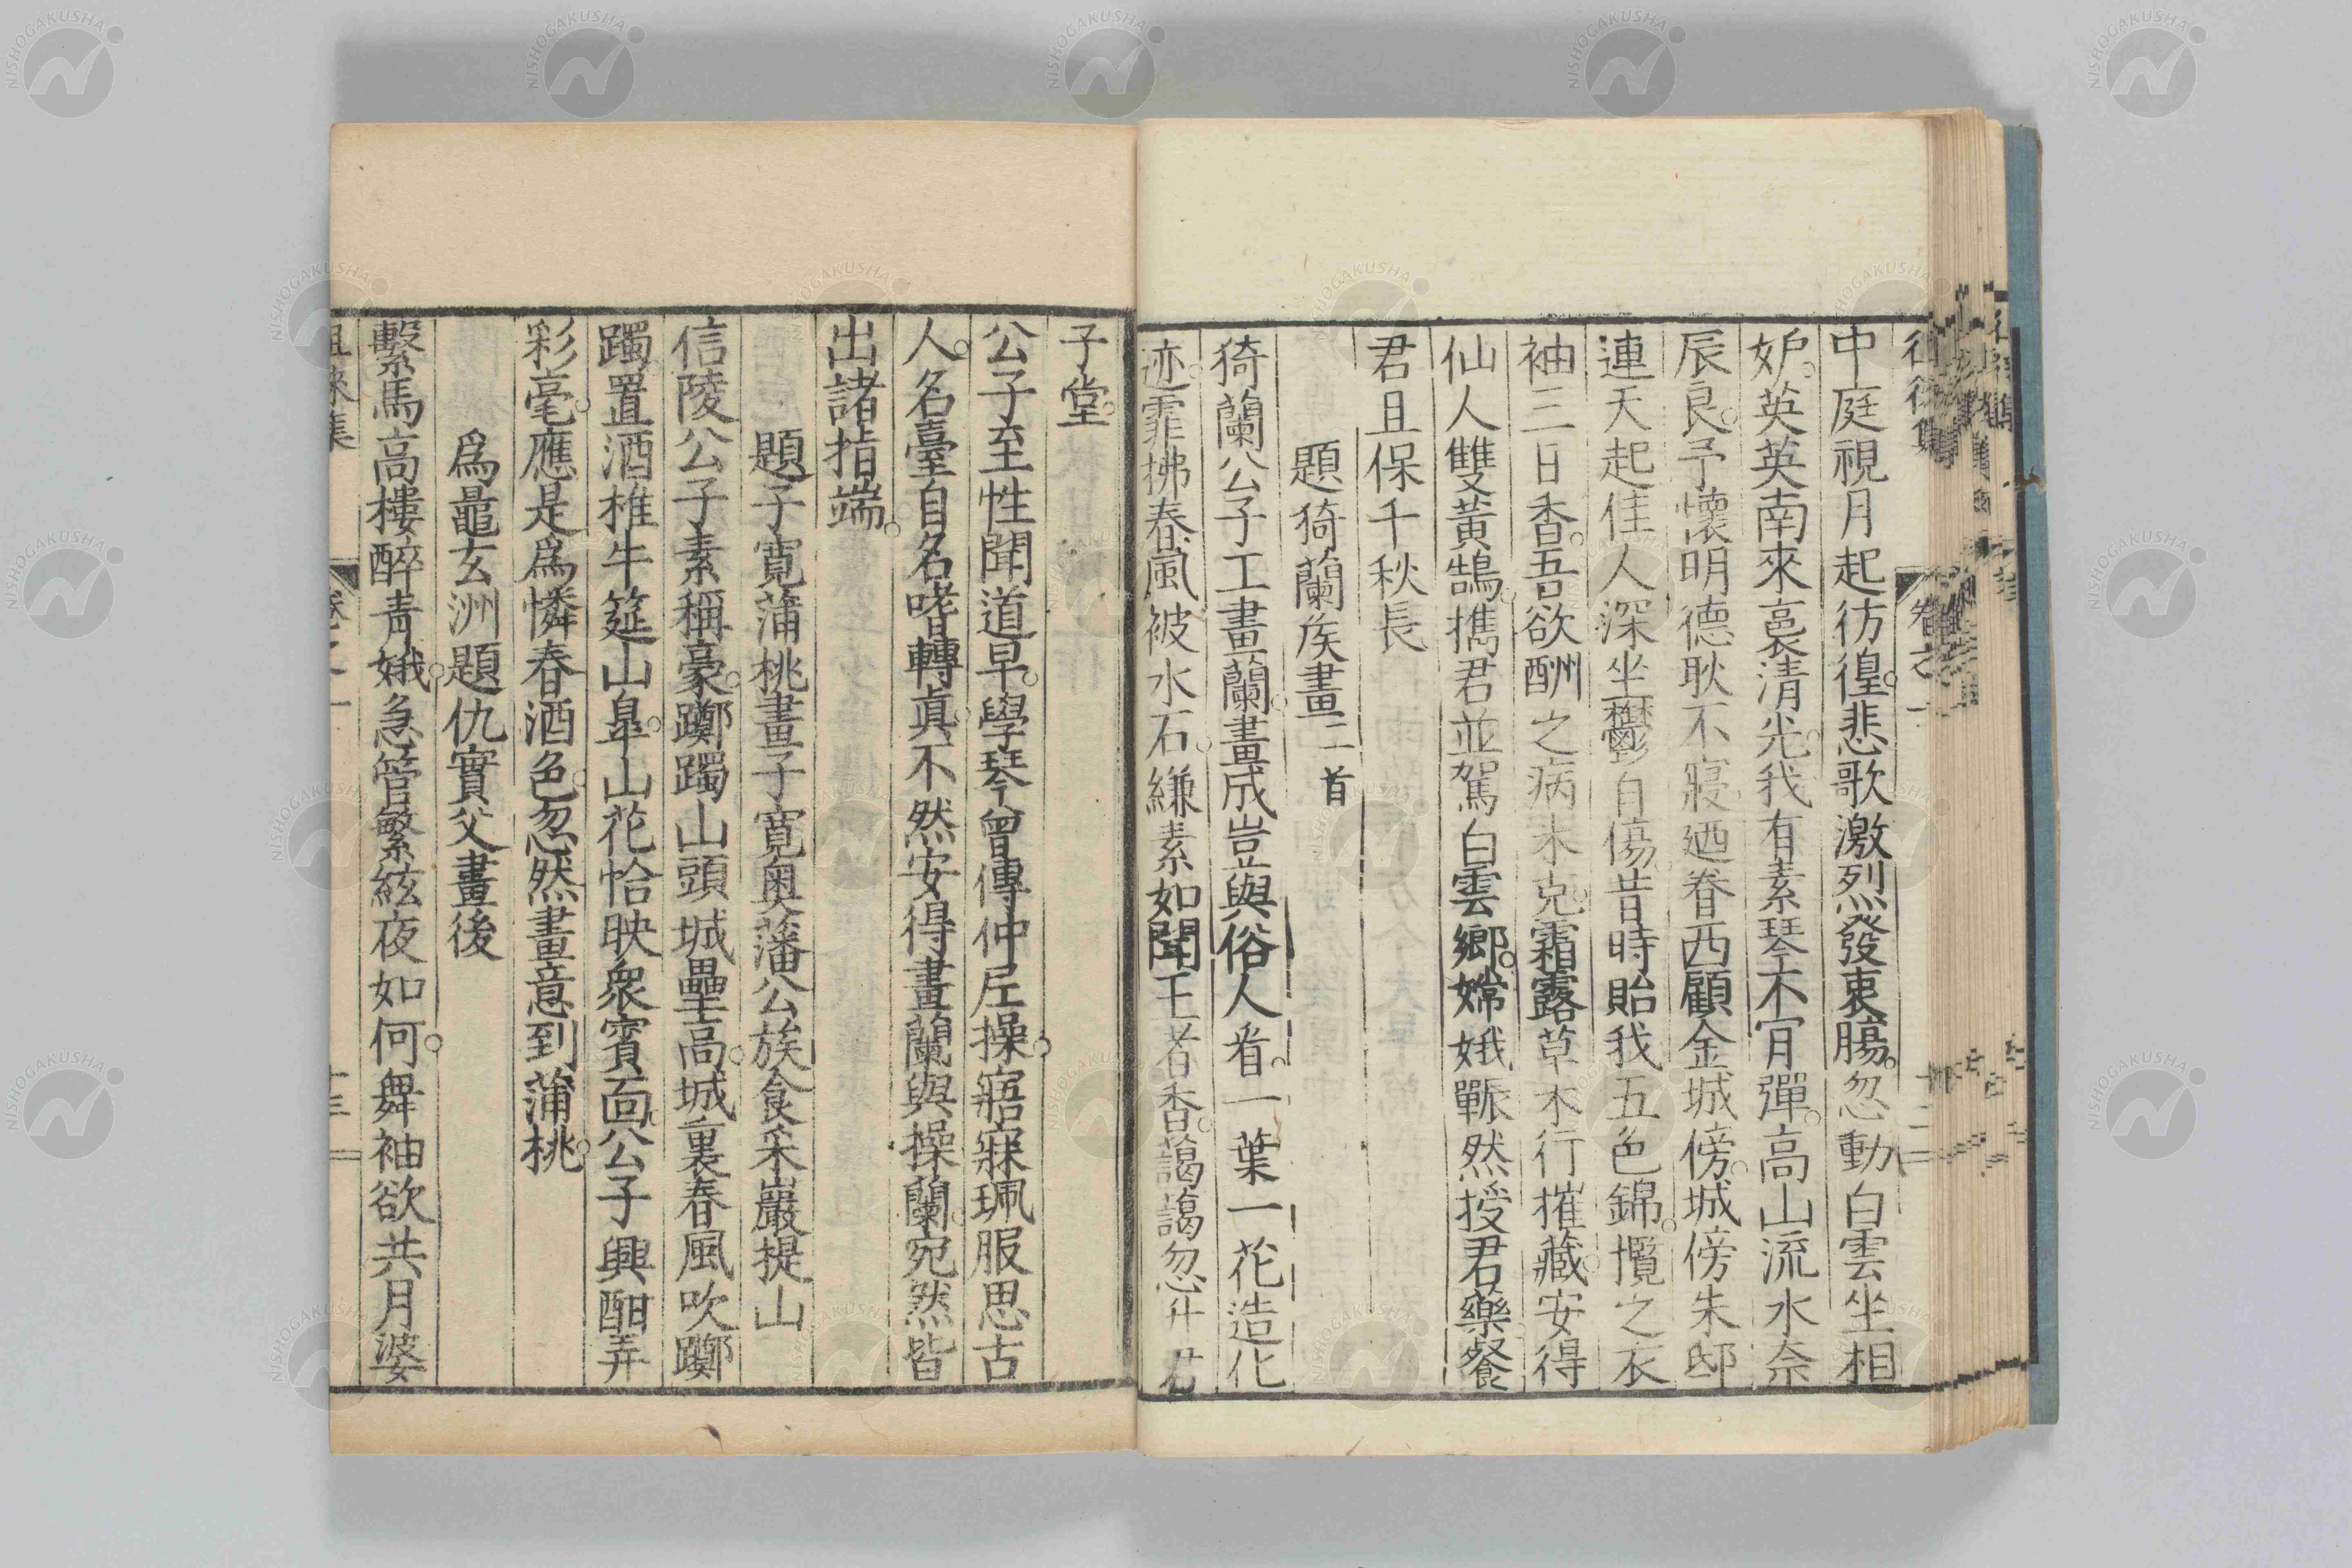 中庭視月起彷徨。悲歌激烈發衷腸。忽動白雲坐相
妒。英英南來裛清光。我有素琴不肯彈。高山流水奈
辰良。予懷明德耿不寢。廼眷西顧金城傍。城傍朱邸
連天起。佳人深坐鬱自傷。昔時貽我五色錦。攬之衣
袖三日香。吾欲酬之病未克。霜露草木行摧藏。安得
仙人雙黃鵠。攜君並駕白雲鄉。嫦娥囅然授君藥。餐
君且保千秋長
題猗蘭矦畫二首
猗蘭公子工畫蘭。畫成豈與俗人看。一葉一花造化
迹。霏拂春風被水石。縑素如聞王者香。藹藹忽升君
子堂。
公子至性聞道早。學琴曾傳仲尼操。寤寐珮服思古
人。名臺自名嗜轉眞。不然安得畫蘭與操蘭。宛然皆
出諸指端。
題子寬蒲桃畫子寬奥藩公族食采巖提山
信陵公子素稱豪。躑躅山頭城壘高。城裏春風吹躑
躅。置酒椎牛筵山皐。山花恰映衆賓面。公子興酣弄
彩毫。應是爲憐春酒色。忽然畫意到蒲桃。
爲鼂玄洲題仇實父畫後
繫馬高樓醉靑娥。急管繁絃夜如何。舞袖欲共月婆
徂徠集
卷之一
十三